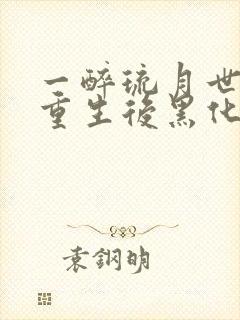 一醉琉月世
重生後黑化
袁鋼明